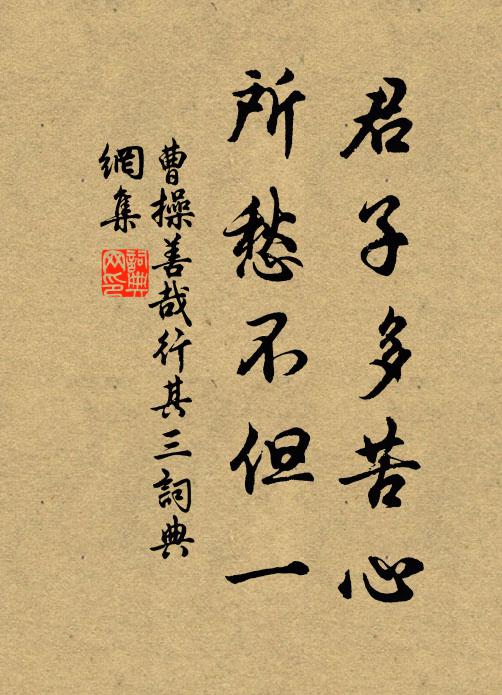 君子多苦心
所愁不但一
曹操善哉行其三詞典
網集
詞典
网印